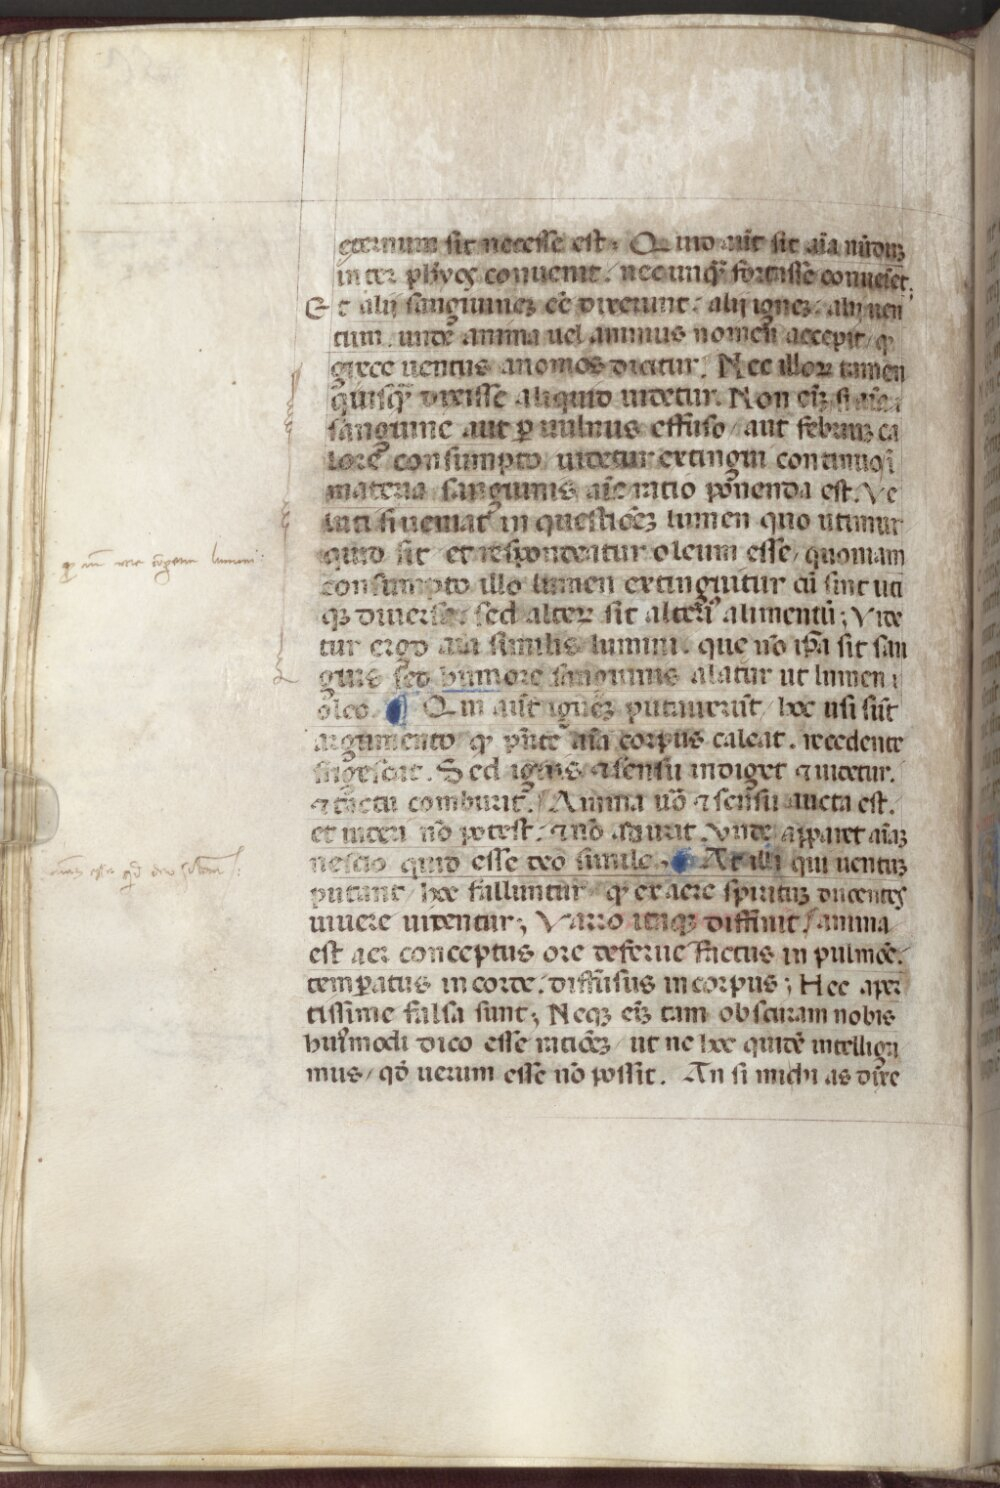 eternum sit necesse est. Quid aūt sit aīa nōdum
inter ph̄os conuenit. nec unq̄ fortasse conueniet;
Et alij sanguineꝫ eē dixerunt. alij igneꝫ. alij uen
tum. unde anima uel animus nomen accepit/ qͥ
grece uentus anomos dicitur. Nec illoꝝ tamen
quisq̄ dixisse aliquid uidetur. Non eiꝫ si aīa
sanguine aut ꝑ uulnus effuso/ aut febriuꝫ ca
lore consumpto uidetur extingui continuo ī
materia sanguinis aīe ratio ponenda est. Ve
luti si ueniat in questiōeꝫ lumen quo utimur
quid sit et respondeatur oleum esse/ quoniam
consumpto illo lumen extinguitur cū sint uti
qꝫ diuersa. sed alteꝝ sit alteriꝰ alimentū; Vide
tur ergo aīa similis lumini. que nō ip̄a sit san
guis sed humore sanguinis alatur ut lumen
oleo. ¶ Qui aūt igneꝫ putauerūt/ hoc usi sūt
argumento qͥ p̄nte aīa corpus caleat. recedente
frigescat. Sed ignis ⁊ sensu indiget ⁊ uidetur.
⁊ tactu comburit. Anima uō ⁊ sensu aucta est.
et uideri nō potest. ⁊ nō adurit. Vnde apparet aīaꝫ
nescio quid esse deo simile. ¶ At illi qui uentuꝫ
putant/ hoc falluntur qͥ ex aere spirituꝫ ducentes
uiuere uidentur; Varro itaqꝫ diffinit/ anima
est aer conceptus ore deferue factus in pulmōe.
temꝑatus in corde. diffusus in corpus; Hec aper
tissime falsa sunt; Neqꝫ eiꝫ tam obscuram nobis
huiꝰmodi dico esse ratiōeꝫ/ ut ne hoc quidē intelligi
mus/ qō uerum esse nō possit. An si michi as dixe